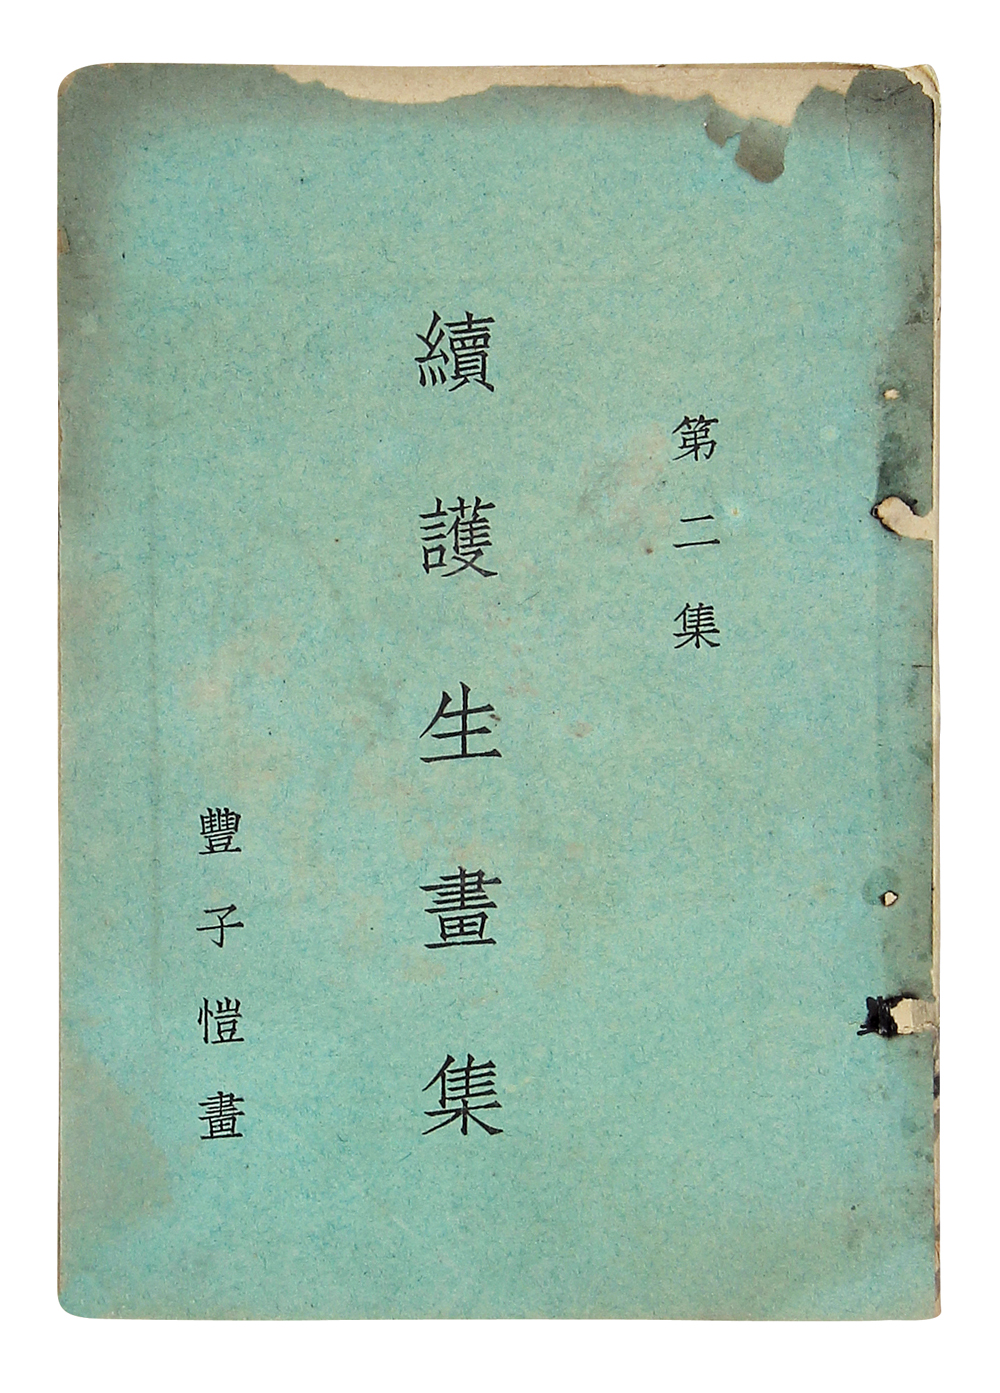 第二集
續護生畫集
豐子愷畫